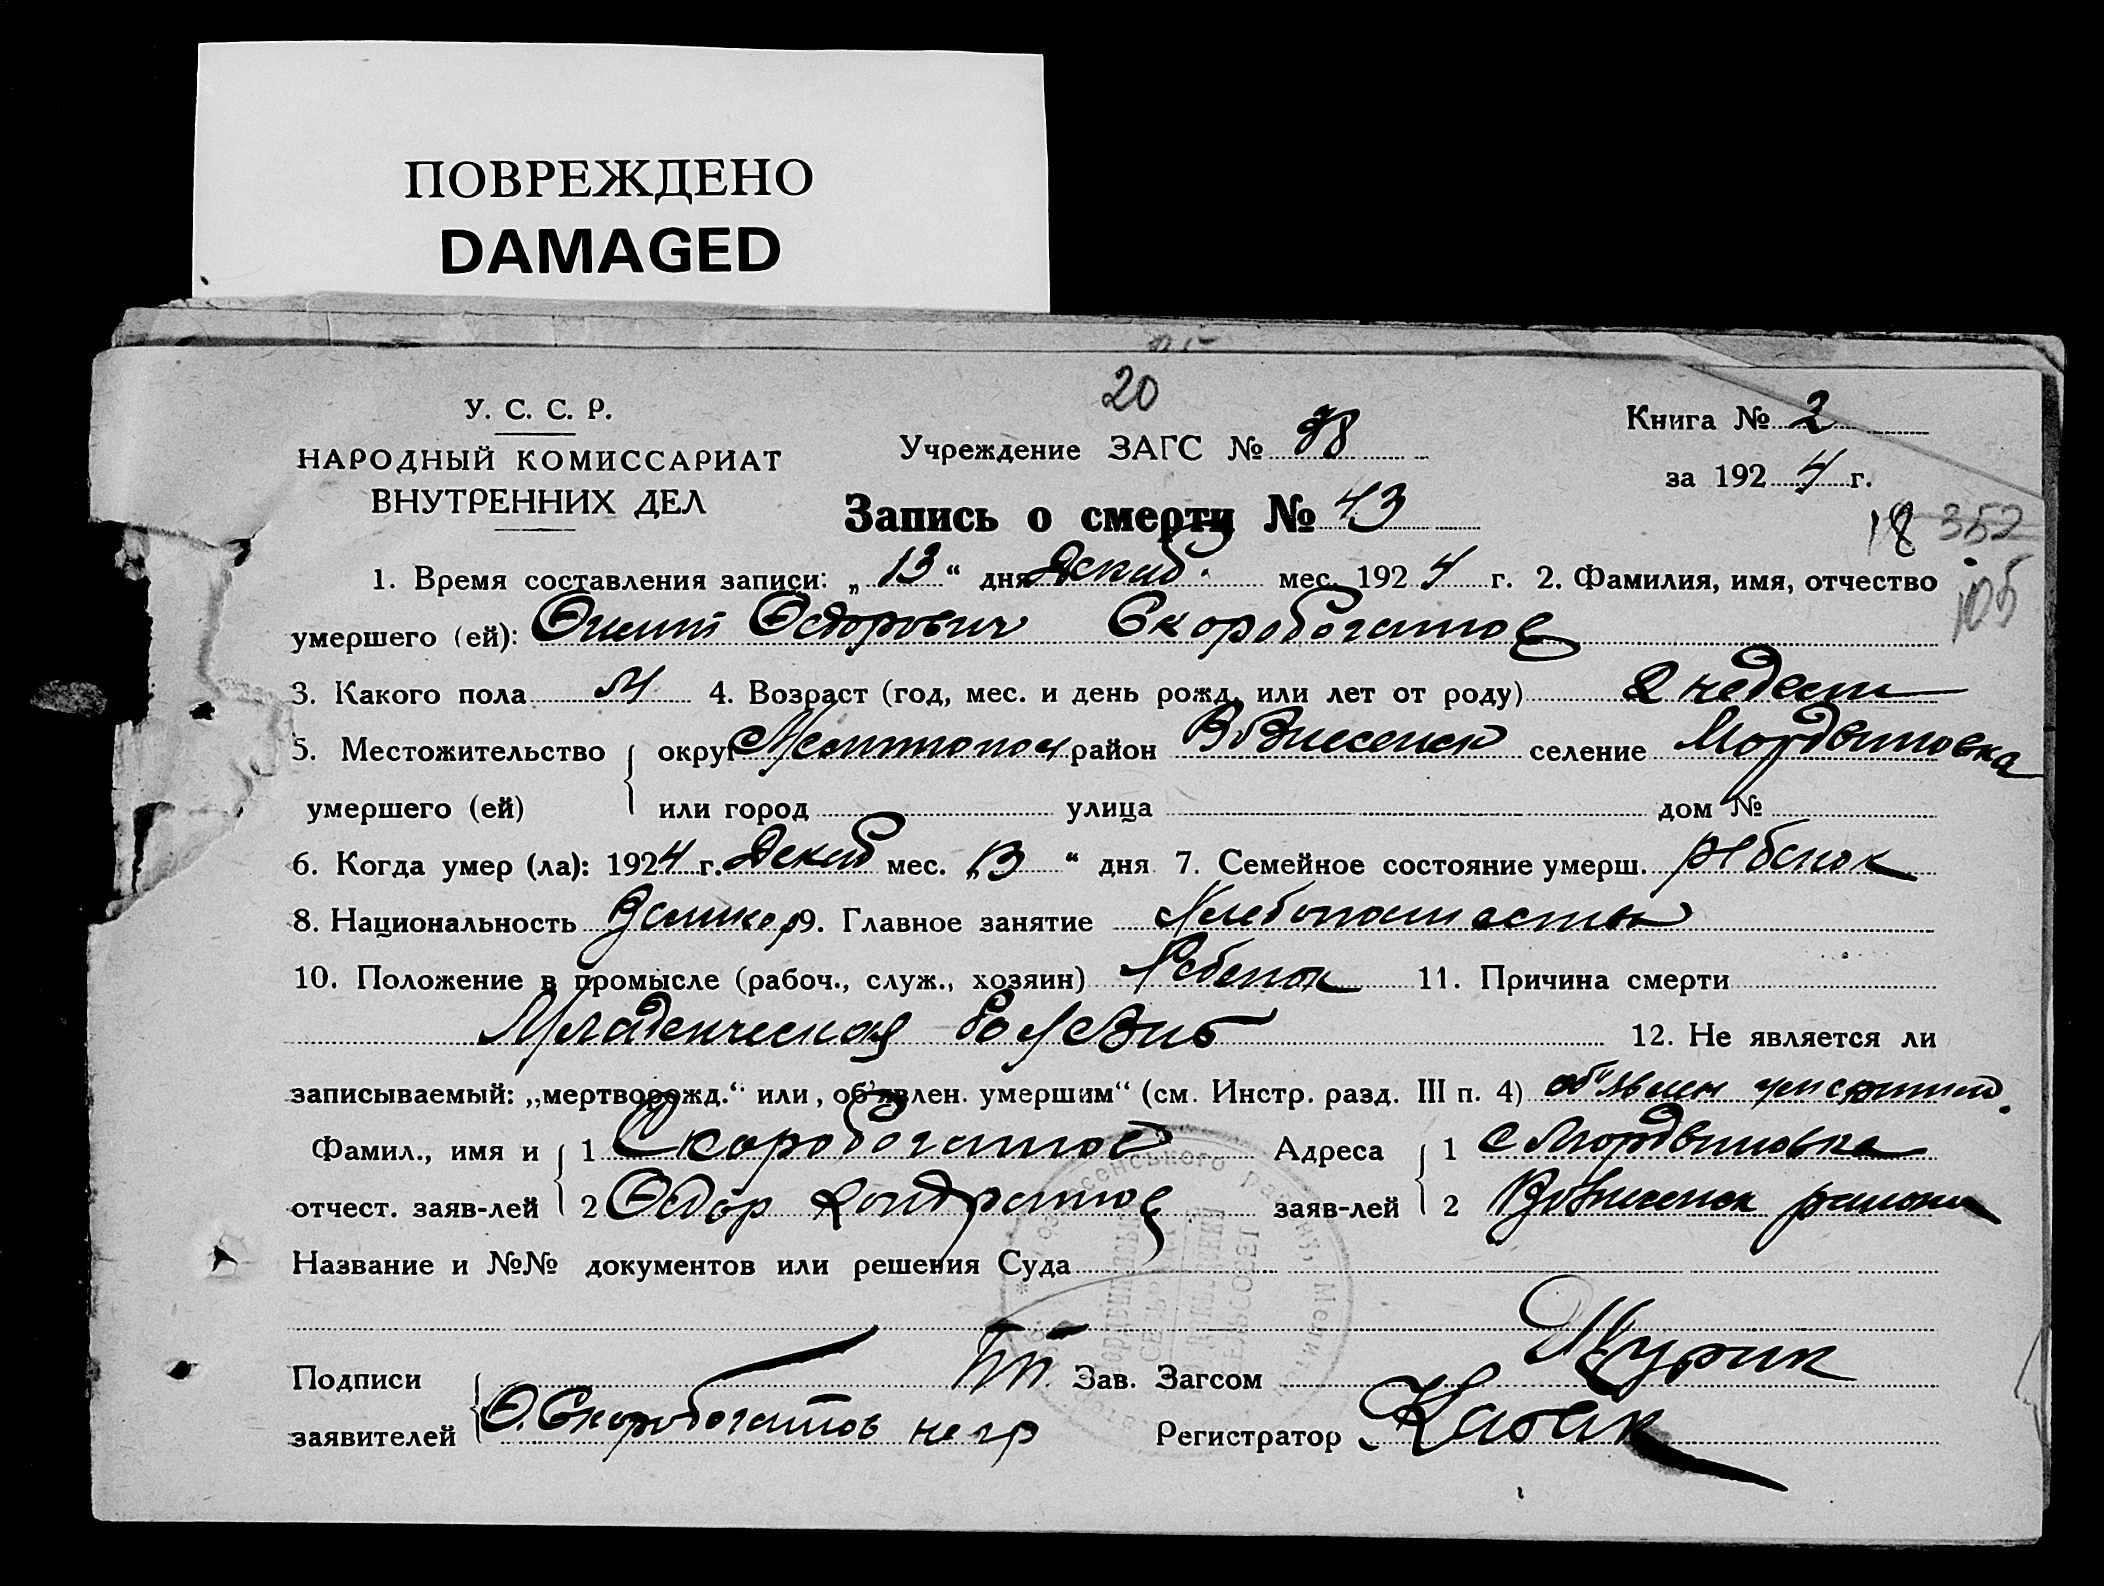 ПОВРЕЖДЕНО
DAMAGED
20
У. С. С. Р.
НАРОДНЫЙ КОМИССАРИАТ
ВНУТРЕННИХ ДЕЛ
Учреждение ЗАГС № 78
Книга № 2
за 1924 г.
Запись о смерти № 43
18 352
105
1. Время составления записи: „13“ дня Декаб. мес. 1924 г. 2. Фамилия, имя, отчество
умершего (ей): Ѳедорович Скоробогатов
3. Какого пола М 4. Возраст (год, мес. и день рожд. или лет от роду) 2 недели
5. Местожительство округ Мелитопол район Вознесенск селение Мордвиновка
умершего (ей) или город улица дом №
6. Когда умер (ла): 1924 г. Декаб мес. „13“ дня 7. Семейное состояние умерш. ребенок
8. Национальность Великор 9. Главное занятие Хлебопашество
10. Положение в промысле (рабоч., служ., хозяин) Ребенок 11. Причина смерти
Младенческая болезнь 12. Не является ли
записываемый: „мертворожд.“ или „об’явлен. умершим“ (см. Инстр. разд. III п. 4) об'явлен
Фамил., имя и 1 Скоробогатов Адреса 1 с Мордвиновка
отчест. заяв-лей 2 Ѳедор Кондратов заяв-лей 2 Вознесенск района
Название и №№ документов или решения Суда
Подписи Зав. Загсом
заявителей Ѳ. Скоробогатов негр Регистратор Кабак